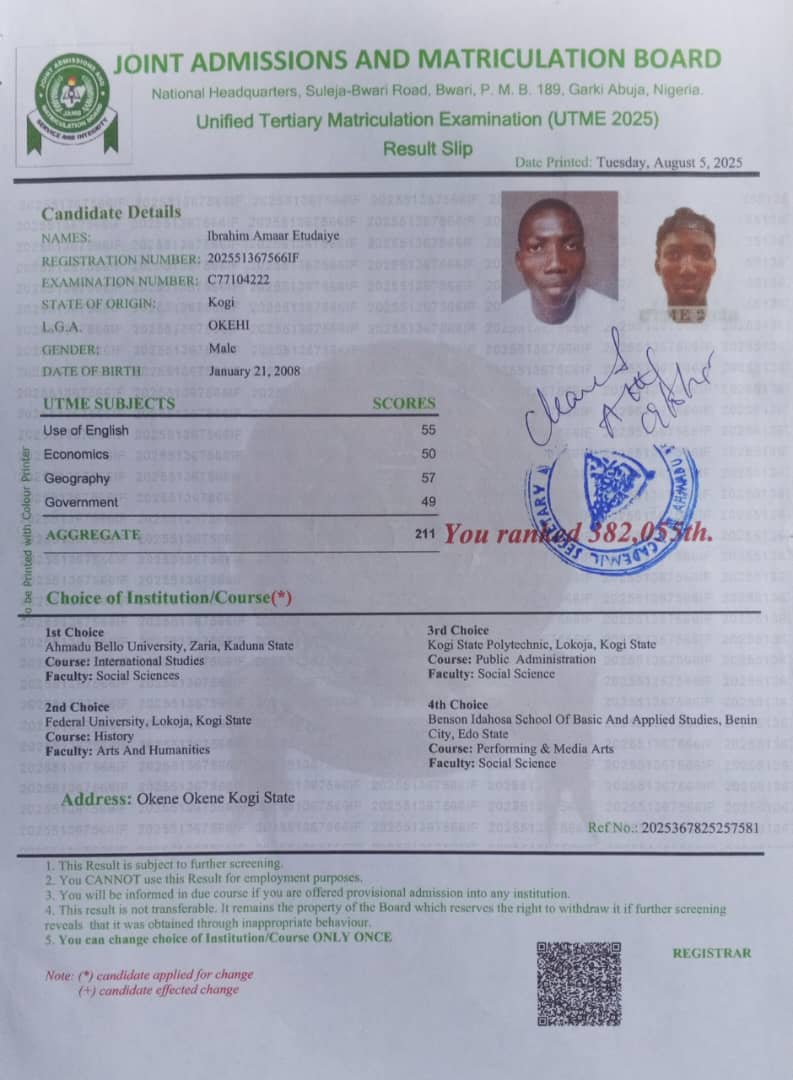 JOINT ADMISSIONS AND MATRICULATION BOARD
National Headquarters, Suleja-Bwari Road, Bwari, P. M. B. 189, Garki Abuja, Nigeria.
Unified Tertiary Matriculation Examination (UTME 2025)
Result Slip
Date Printed: Tuesday, August 5, 2025
JOINT ADMISSIONS AND MATRICULATION BOARD
JAMB
SERVICE AND INTEGRITY
Candidate Details
NAMES: Ibrahim Amaar Etudaiye
REGISTRATION NUMBER: 202551367566IF
EXAMINATION NUMBER: C77104222
STATE OF ORIGIN: Kogi
L.G.A. OKEHI
GENDER: Male
DATE OF BIRTH January 21, 2008
UTME SUBJECTS SCORES
Use of English 55
Economics 50
Geography 57
Government 49
AGGREGATE 211 You ranked 382,055th.
SECRETARY
AHMADU
To be Printed with Colour Printer
Choice of Institution/Course(*)
1st Choice
Ahmadu Bello University, Zaria, Kaduna State
Course: International Studies
Faculty: Social Sciences
2nd Choice
Federal University, Lokoja, Kogi State
Course: History
Faculty: Arts And Humanities
3rd Choice
Kogi State Polytechnic, Lokoja, Kogi State
Course: Public Administration
Faculty: Social Science
4th Choice
Benson Idahosa School Of Basic And Applied Studies, Benin
City, Edo State
Course: Performing & Media Arts
Faculty: Social Science
Address: Okene Okene Kogi State
Ref No.: 2025367825257581
1. This Result is subject to further screening.
2. You CANNOT use this Result for employment purposes.
3. You will be informed in due course if you are offered provisional admission into any institution.
4. This result is not transferable. It remains the property of the Board which reserves the right to withdraw it if further screening
reveals that it was obtained through inappropriate behaviour.
5. You can change choice of Institution/Course ONLY ONCE
REGISTRAR
Note: (*) candidate applied for change
(+) candidate effected change